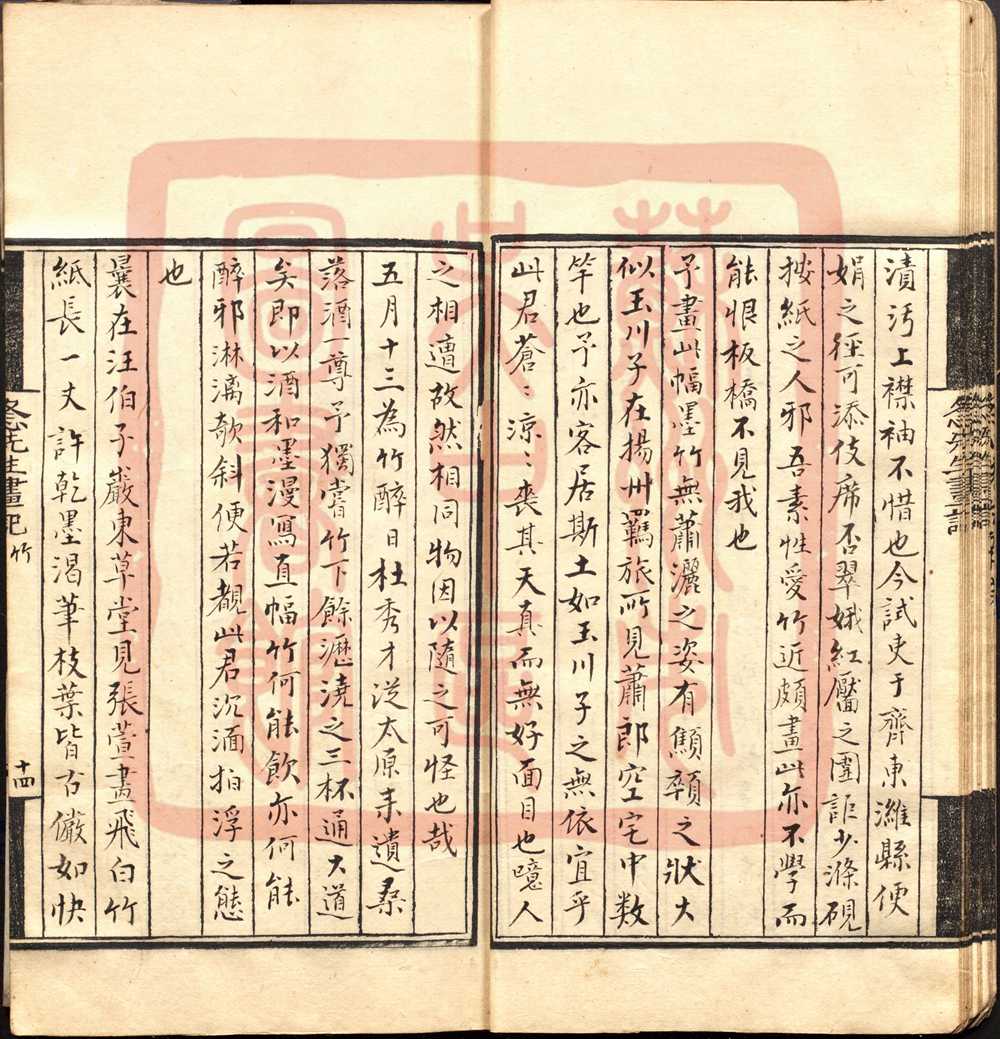 漬污上襟袖不惜也今試吏于齊東濰縣便
娟之徑可添伎席否翠娥紅靨之圍詎少滌硯
按紙之人邪吾素性愛竹近頗畫此亦不學而
能恨板橋不見我也
予畫此幅墨竹無蕭灑之姿有顦顇之狀大
似玉川子在揚州羈旅所見蕭郎空宅中数
竿也予亦客居斯土如玉川子之無依宜乎
此君蒼〻涼〻喪其天真而無好面目也噫人
之相遭故然相同物因以隨之可怪也哉
五月十三為竹醉日杜秀才従太原来遺桑
落酒一尊予獨嘗竹下餘瀝澆之三杯通大道
矣即以酒和墨漫寫直幅竹何能飲亦何能
醉邪淋漓欹斜便若覩此君沉湎拍浮之態
也
曩在汪伯子巖東草堂見張萱畫飛白竹
紙長一丈許乾墨渴筆枝葉皆古儼如快
冬心先生畫記 竹
十四